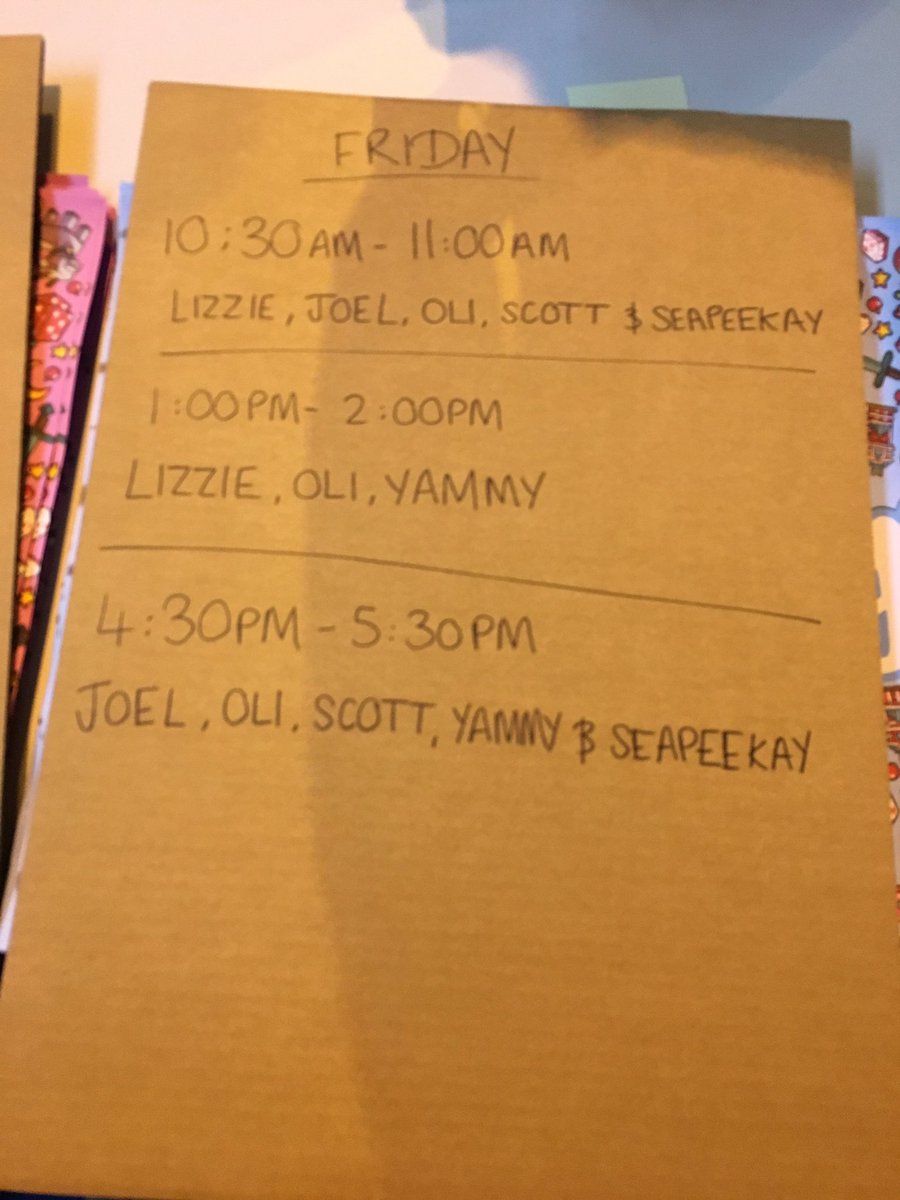 FRIDAY
10:30AM - 11:00AM
LIZZIE, JOEL, OLI, SCOTT & SEAPEEKAY
1:00PM - 2:00PM
LIZZIE, OLI, YAMMY
4:30PM - 5:30PM
JOEL, OLI, SCOTT, YAMMY & SEAPEEKAY